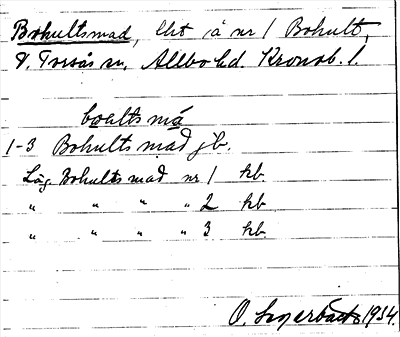 Bohultsmad, lht å nr 1 Bohult,
V. Torsås sn, Allbo hd. Kronob. l.
boaltsmá
1-3 Bohultsmad jb.
Läg. Bohultsmad nr 1 kb.
" " " " 2 kb
" " " " 3 kb
O. 1934.